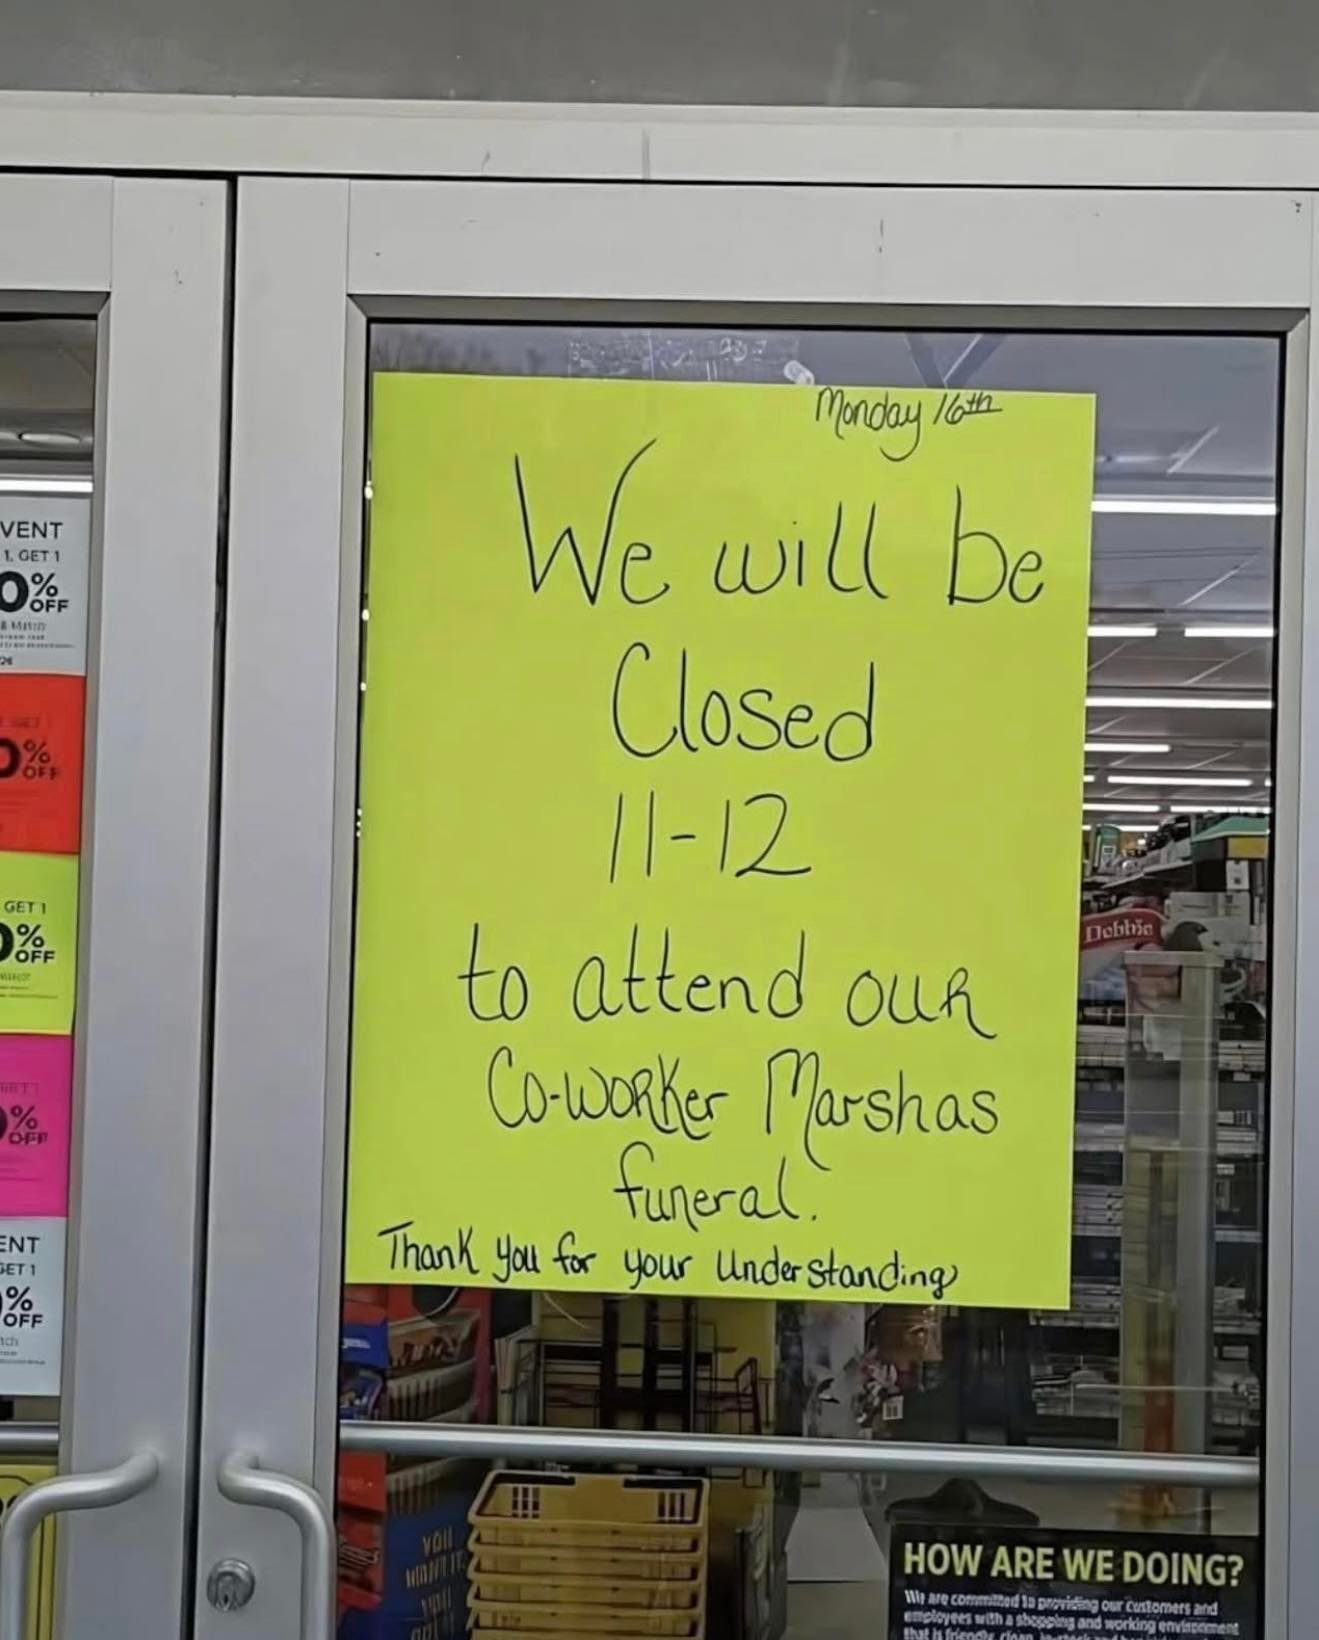 Monday 16th
We will be
Closed
11-12
to attend our
Co-worker Marshas
funeral.
Thank you for your understanding
VENT
1, GET 1
0%
OFF
%
OFF
GET 1
%
OFF
%
OFF
ENT
GET 1
%
OFF
Debbie
YOU
HOW ARE WE DOING?
We are committed to providing our customers and
employees with a shopping and working environment
that is friendly, clean, in-stock